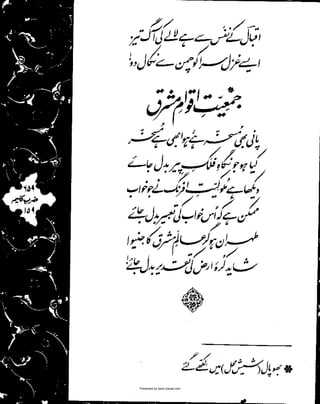 اقبال کے نفَس سے ہے لالے کی آگ تیز
ایسے غزل سرا کو چمن سے نکال دو!
جمعیّتِ اقوامِ مشرق
پانی بھی مسخر ہے ہوا بھی ہے مسخر
کیا ہو جو نگاہِ فلکِ پیر بدل جائے
دیکھا ہے ملوکیتِ افرنگ نے جو خواب
ممکن ہے کہ اُس خواب کی تعبیر بدل جائے
طہران ہو گر عالمِ مشرق کا جنیوا
شاید کرۂ ارض کی تقدیر بدل جائے!
* بھوپال (شیش محل) میں لکھے گئے
۶۵۹
ضربِ کلیم
۱۵۹
Presented by www.ziaraat.com